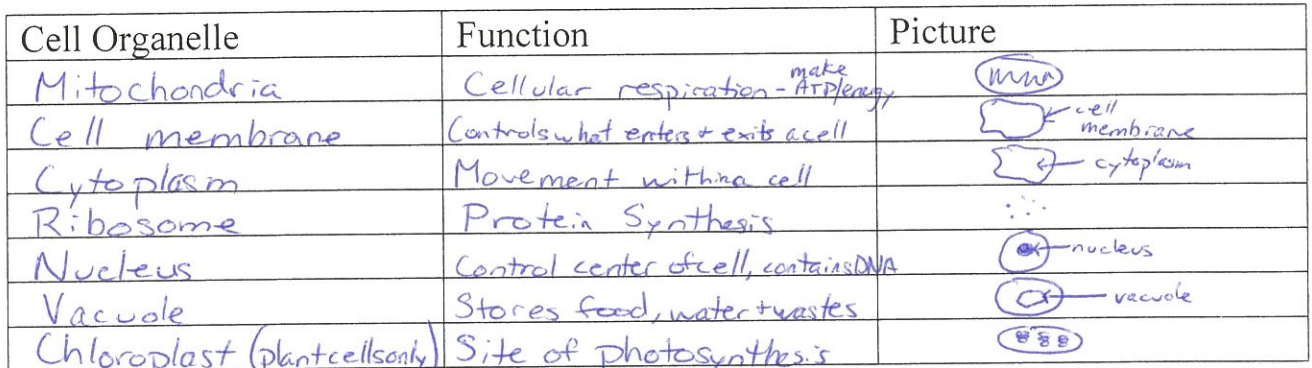 Cell Organelle Function Picture
Mitochondria Cellular respiration - make ATP/energy
Cell membrane Controls what enters + exits a cell cell membrane
Cytoplasm Movement within a cell cytoplasm
Ribosome Protein Synthesis
Nucleus Control center of cell, contains DNA nucleus
Vacuole Stores food, water + wastes vacuole
Chloroplast (plant cells only) Site of photosynthesis